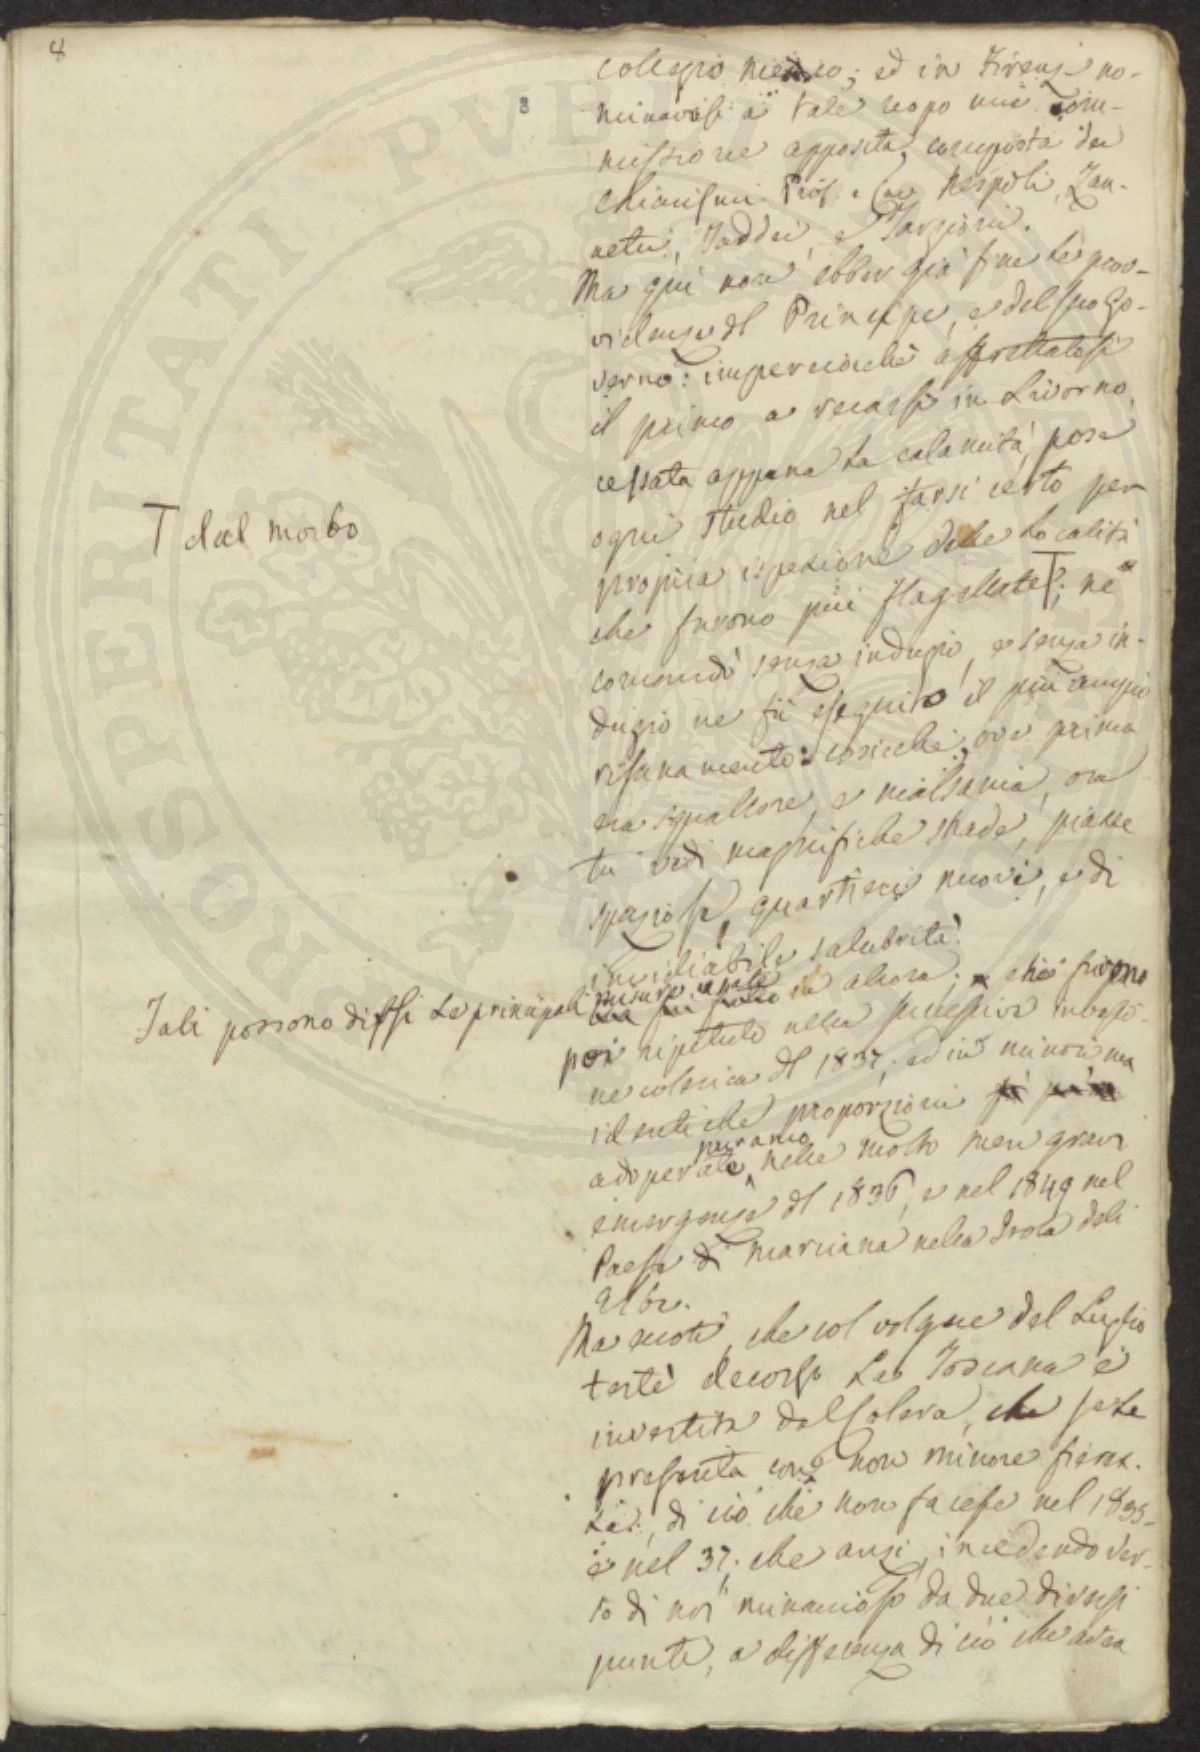 8
collegio medico; ed in Firenze no-
minavasi a tale uopo una Com-
missione apposita, composta dei
Chiarissimi Prof. Cav. Nespoli, Zan-
netti, Taddei, e Targioni.
Ma qui non ebber già fine le prov-
videnze del Principe, e del suo Go-
verno: imperciocchè affrettatosi
il primo a recarsi in Livorno,
cessata appena la calamità, pose
ogni studio nel farsi certo per
propria ispezione delle località
che furono più flagellate T; ne
comandò senza indugio, e senza in-
dugio ne fù eseguito il più ampio
risanamento: cosicchè, ove prima
era squallore, e malsania, ora
tu vedi magnifiche strade, piazze
spaziose, quartieri nuovi, e di
invidiabile salubrità.
T dal morbo
Tali possono dirsi le principali
misure usate in allora; che furono
poi ripetute nella successiva invasio-
ne colerica del 1837; ed in minori ma
identiche proporzioni
adoperate, nelle molto men gravi
emergenze del 1836, e nel 1849 nel
Paese di Marciana nella Isola dell'
Elba.
Ma ecco, che col volgere del Luglio
testè decorso La Toscana è
investita dal Colera, che se le
presenta con non minore fierez-
za, di ciò che non facesse nel 1835-
e nel 37; che anzi, incedendo ver-
so di noi minaccioso da due diversi
punti, a differenza di ciò che avea